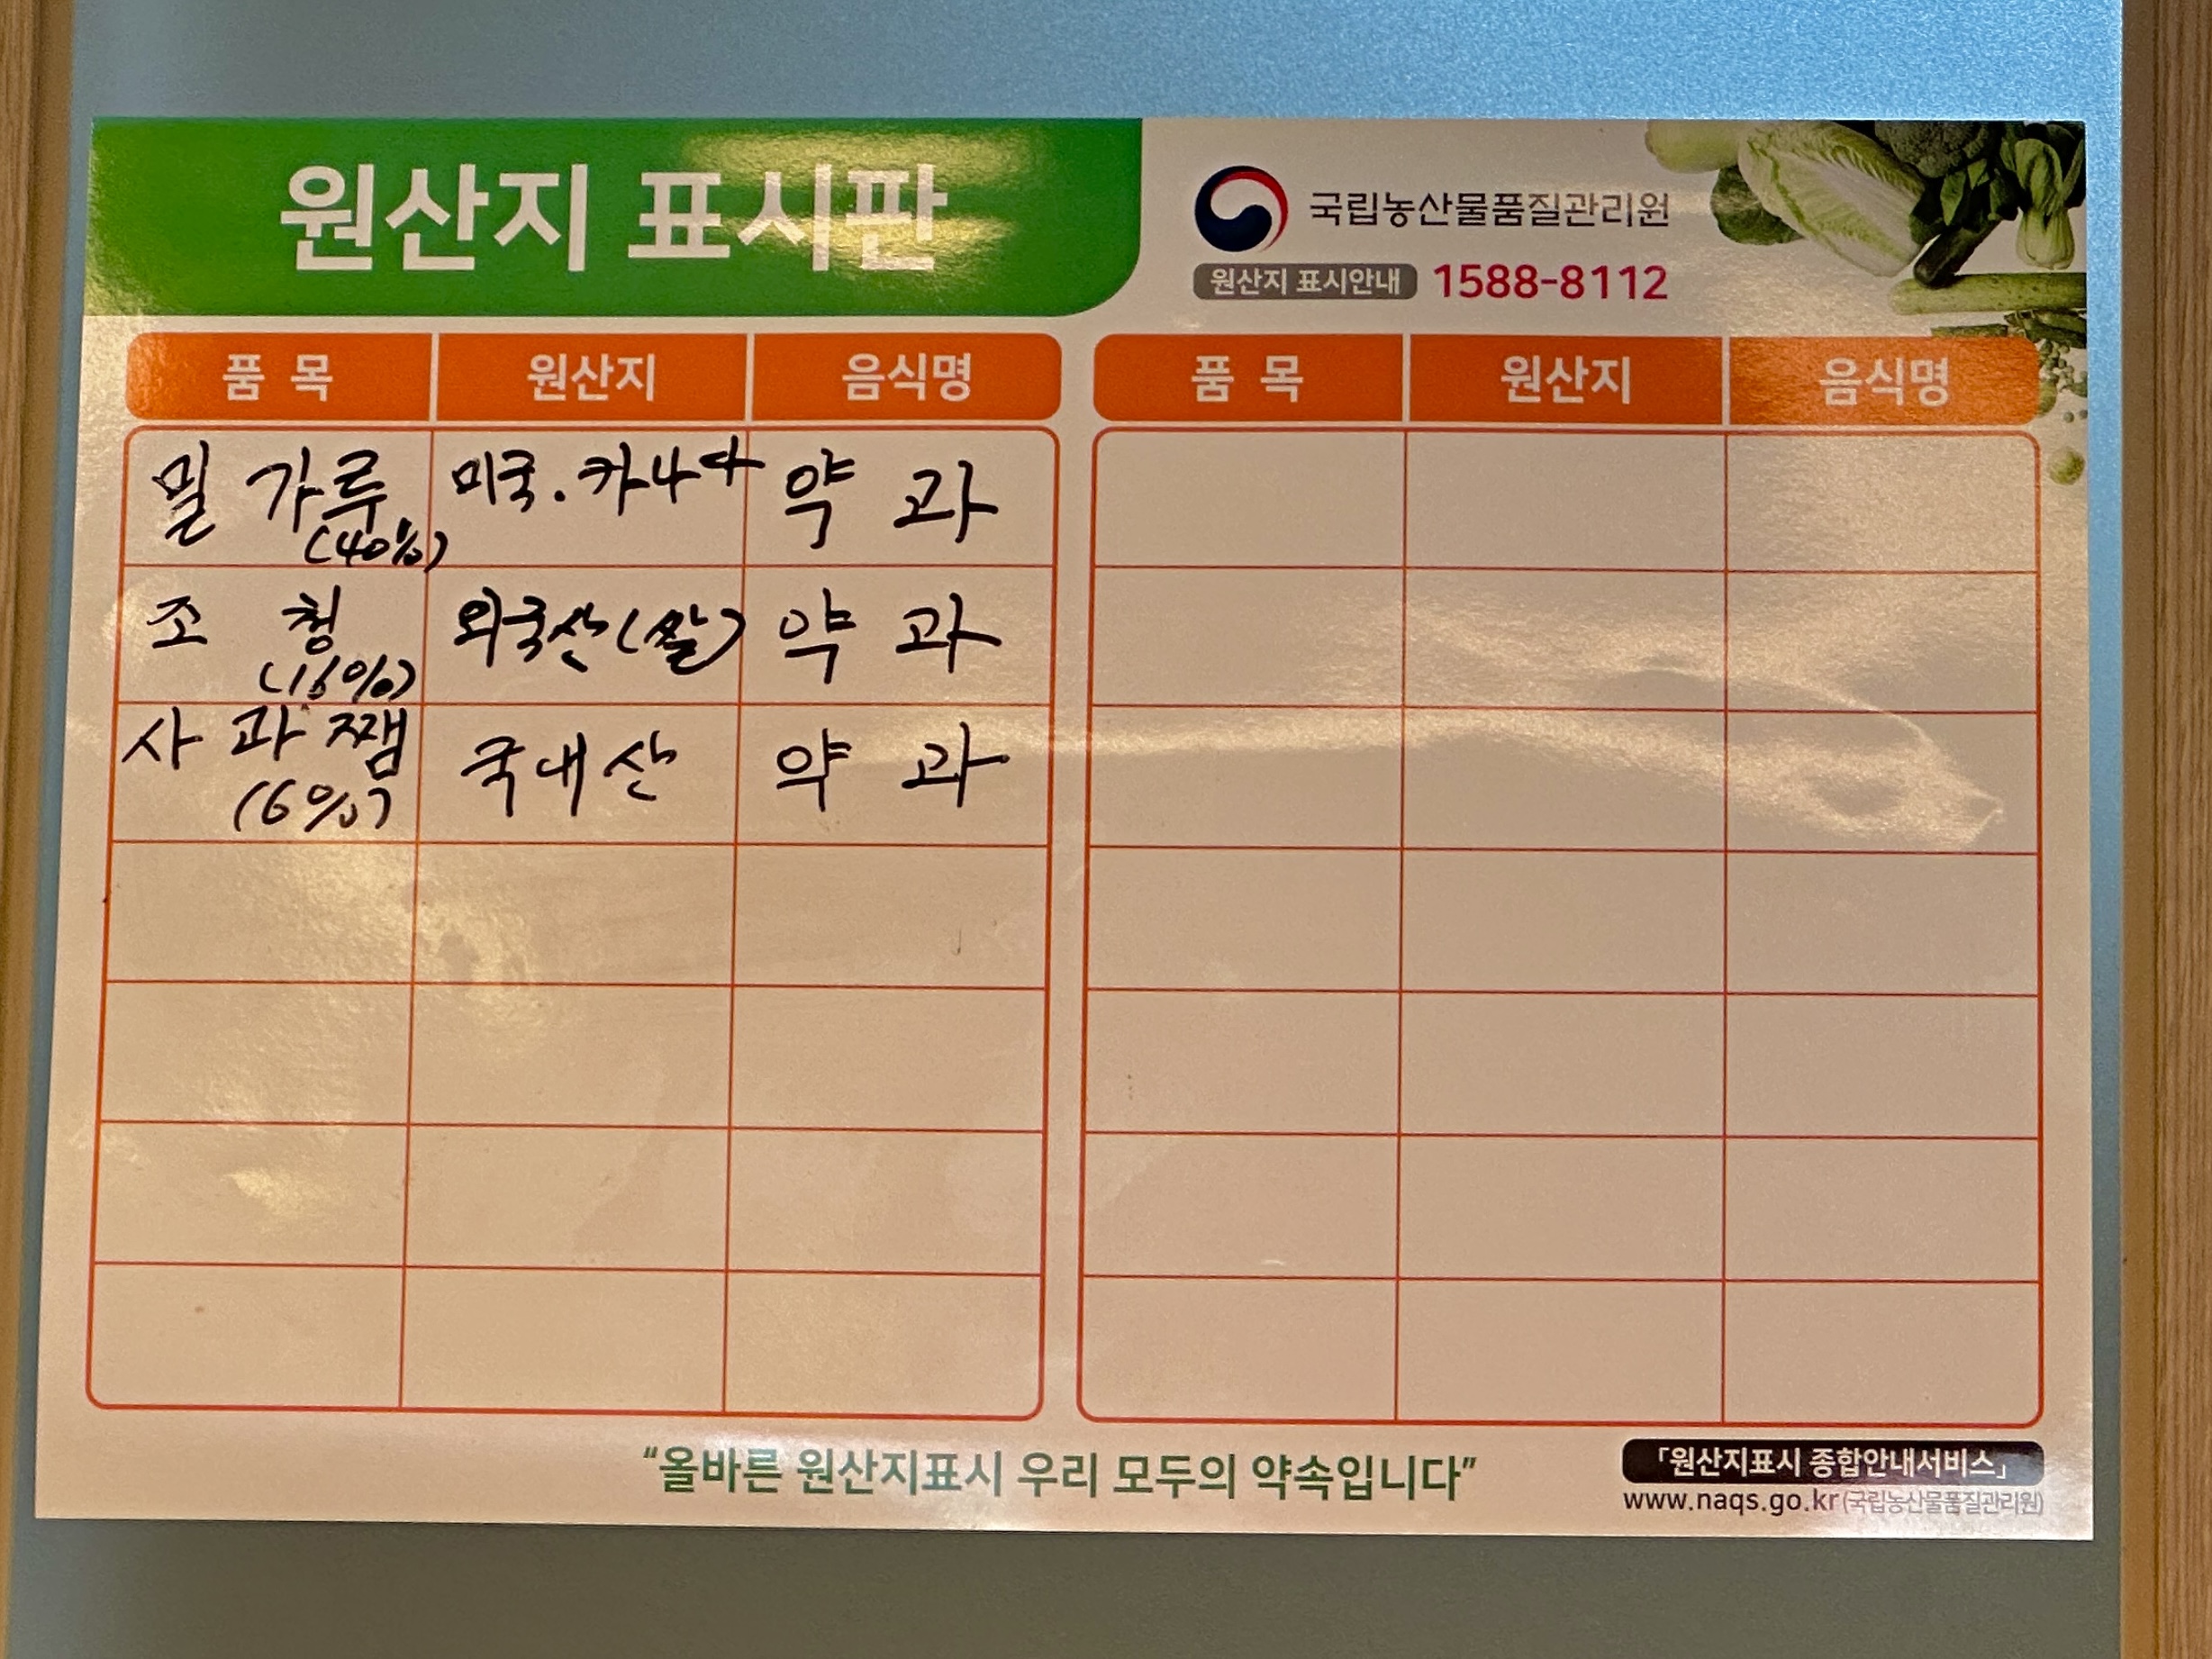 원산지 표시판
국립농산물품질관리원
원산지 표시안내 1588-8112
품 목 원산지 음식명 품 목 원산지 음식명
밀 가루 미국.카나다 약 과
(40%)
조 청 외국산(쌀) 약 과
(16%)
사 과 쨈 국내산 약 과
(6%)
“올바른 원산지표시 우리 모두의 약속입니다”
「원산지표시 종합안내서비스」
www.naqs.go.kr(국립농산물품질관리원)